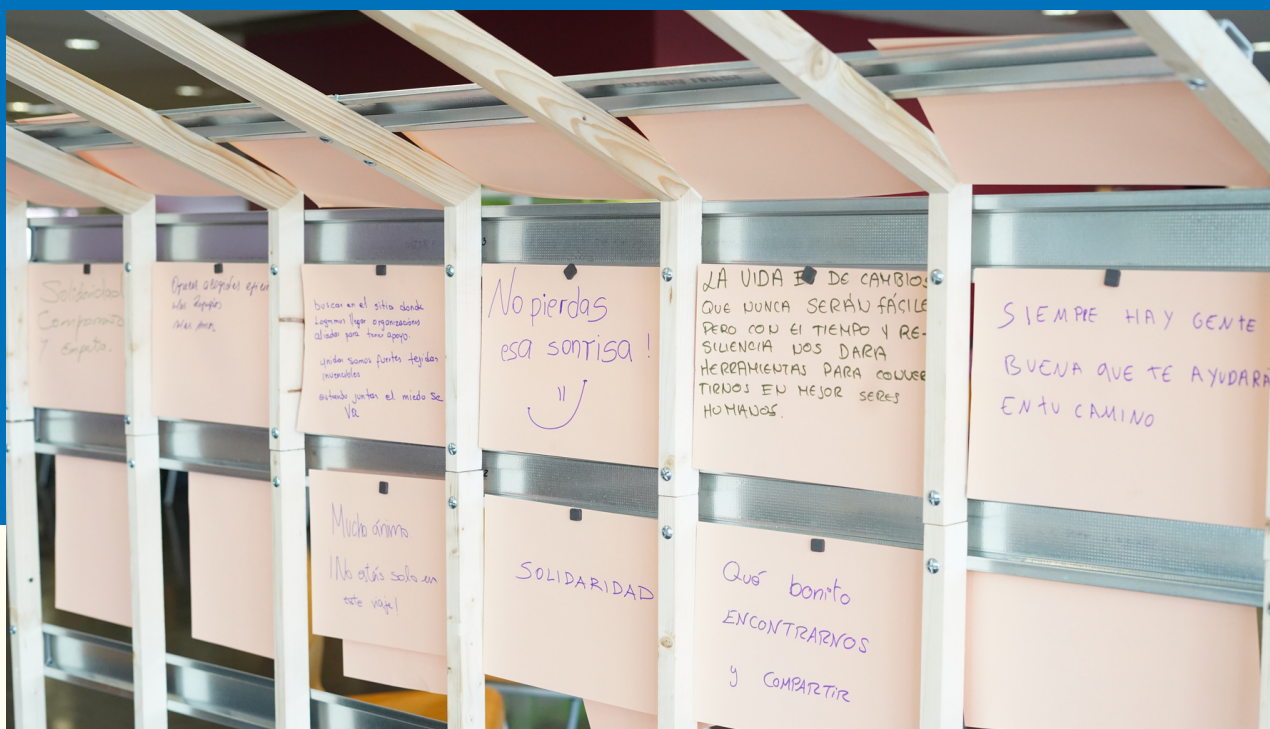 Solidaridad
Compromiso
Y Empatía.
buscar en el sitio donde
logremos llegar organizaciones
aliadas para tener apoyo.
unidas somos fuertes tejidos
invencibles
estando juntas el miedo se
va
No pierdas
esa sonrisa !
LA VIDA ES DE CAMBIOS
QUE NUNCA SERÁN FÁCILE
PERO CON El TIEMPO Y RE-
SILENCIA NOS DARÁ
HERRAMIENTAS PARA CONVER
TIRNOS EN MEJOR SERES
HUMANOS.
SIEMPRE HAY GENTE
BUENA QUE TE AYUDARÁ
EN TU CAMINO
Mucho ánimo
¡No estás solo en
este viaje!
SOLIDARIDAD
Qué bonito
ENCONTRARNOS
y COMPARTIR